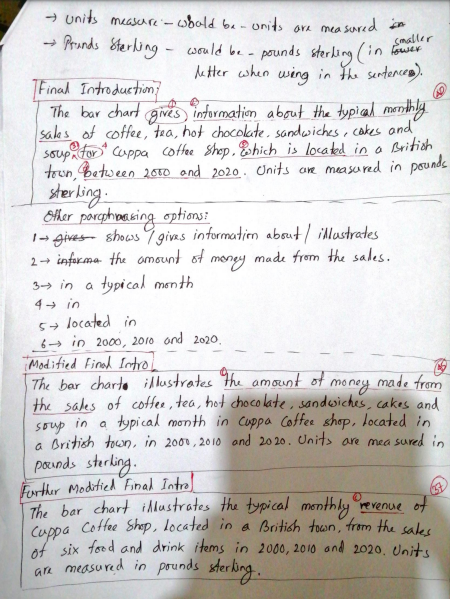 → Units measure - would be - units are measured
→ Pounds Sterling - would be - pounds sterling (in smaller
letter when using in the sentences).
Final Introduction:
The bar chart gives information about the typical monthly
sales of coffee, tea, hot chocolate, sandwiches, cakes and
soup for Cuppa Coffee Shop, which is located in a British
town, between 2000 and 2020. Units are measured in pounds
sterling.
Other paraphrasing options:
1 → gives shows / gives information about / illustrates
2 → informa the amount of money made from the sales.
3 → in a typical month
4 → in
5 → located in
6 → in 2000, 2010 and 2020.
Modified Final Intro
The bar chart illustrates the amount of money made from
the sales of coffee, tea, hot chocolate, sandwiches, cakes and
soup in a typical month in Cuppa Coffee shop, located in
a British town, in 2000, 2010 and 2020. Units are measured in
pounds sterling.
Further Modified Final Intro
The bar chart illustrates the typical monthly revenue of
Cuppa Coffee Shop, located in a British town, from the sales
of six food and drink items in 2000, 2010 and 2020. Units
are measured in pounds sterling.